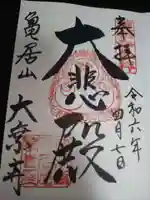 奉拝
令和六年
四月七日
大悲殿
亀居山
大乗寺